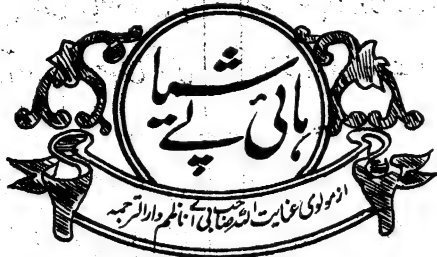 ہائی پے شیا
از مولوی عنایت اللہ صاحب بی اے ناظم دارالترجمہ